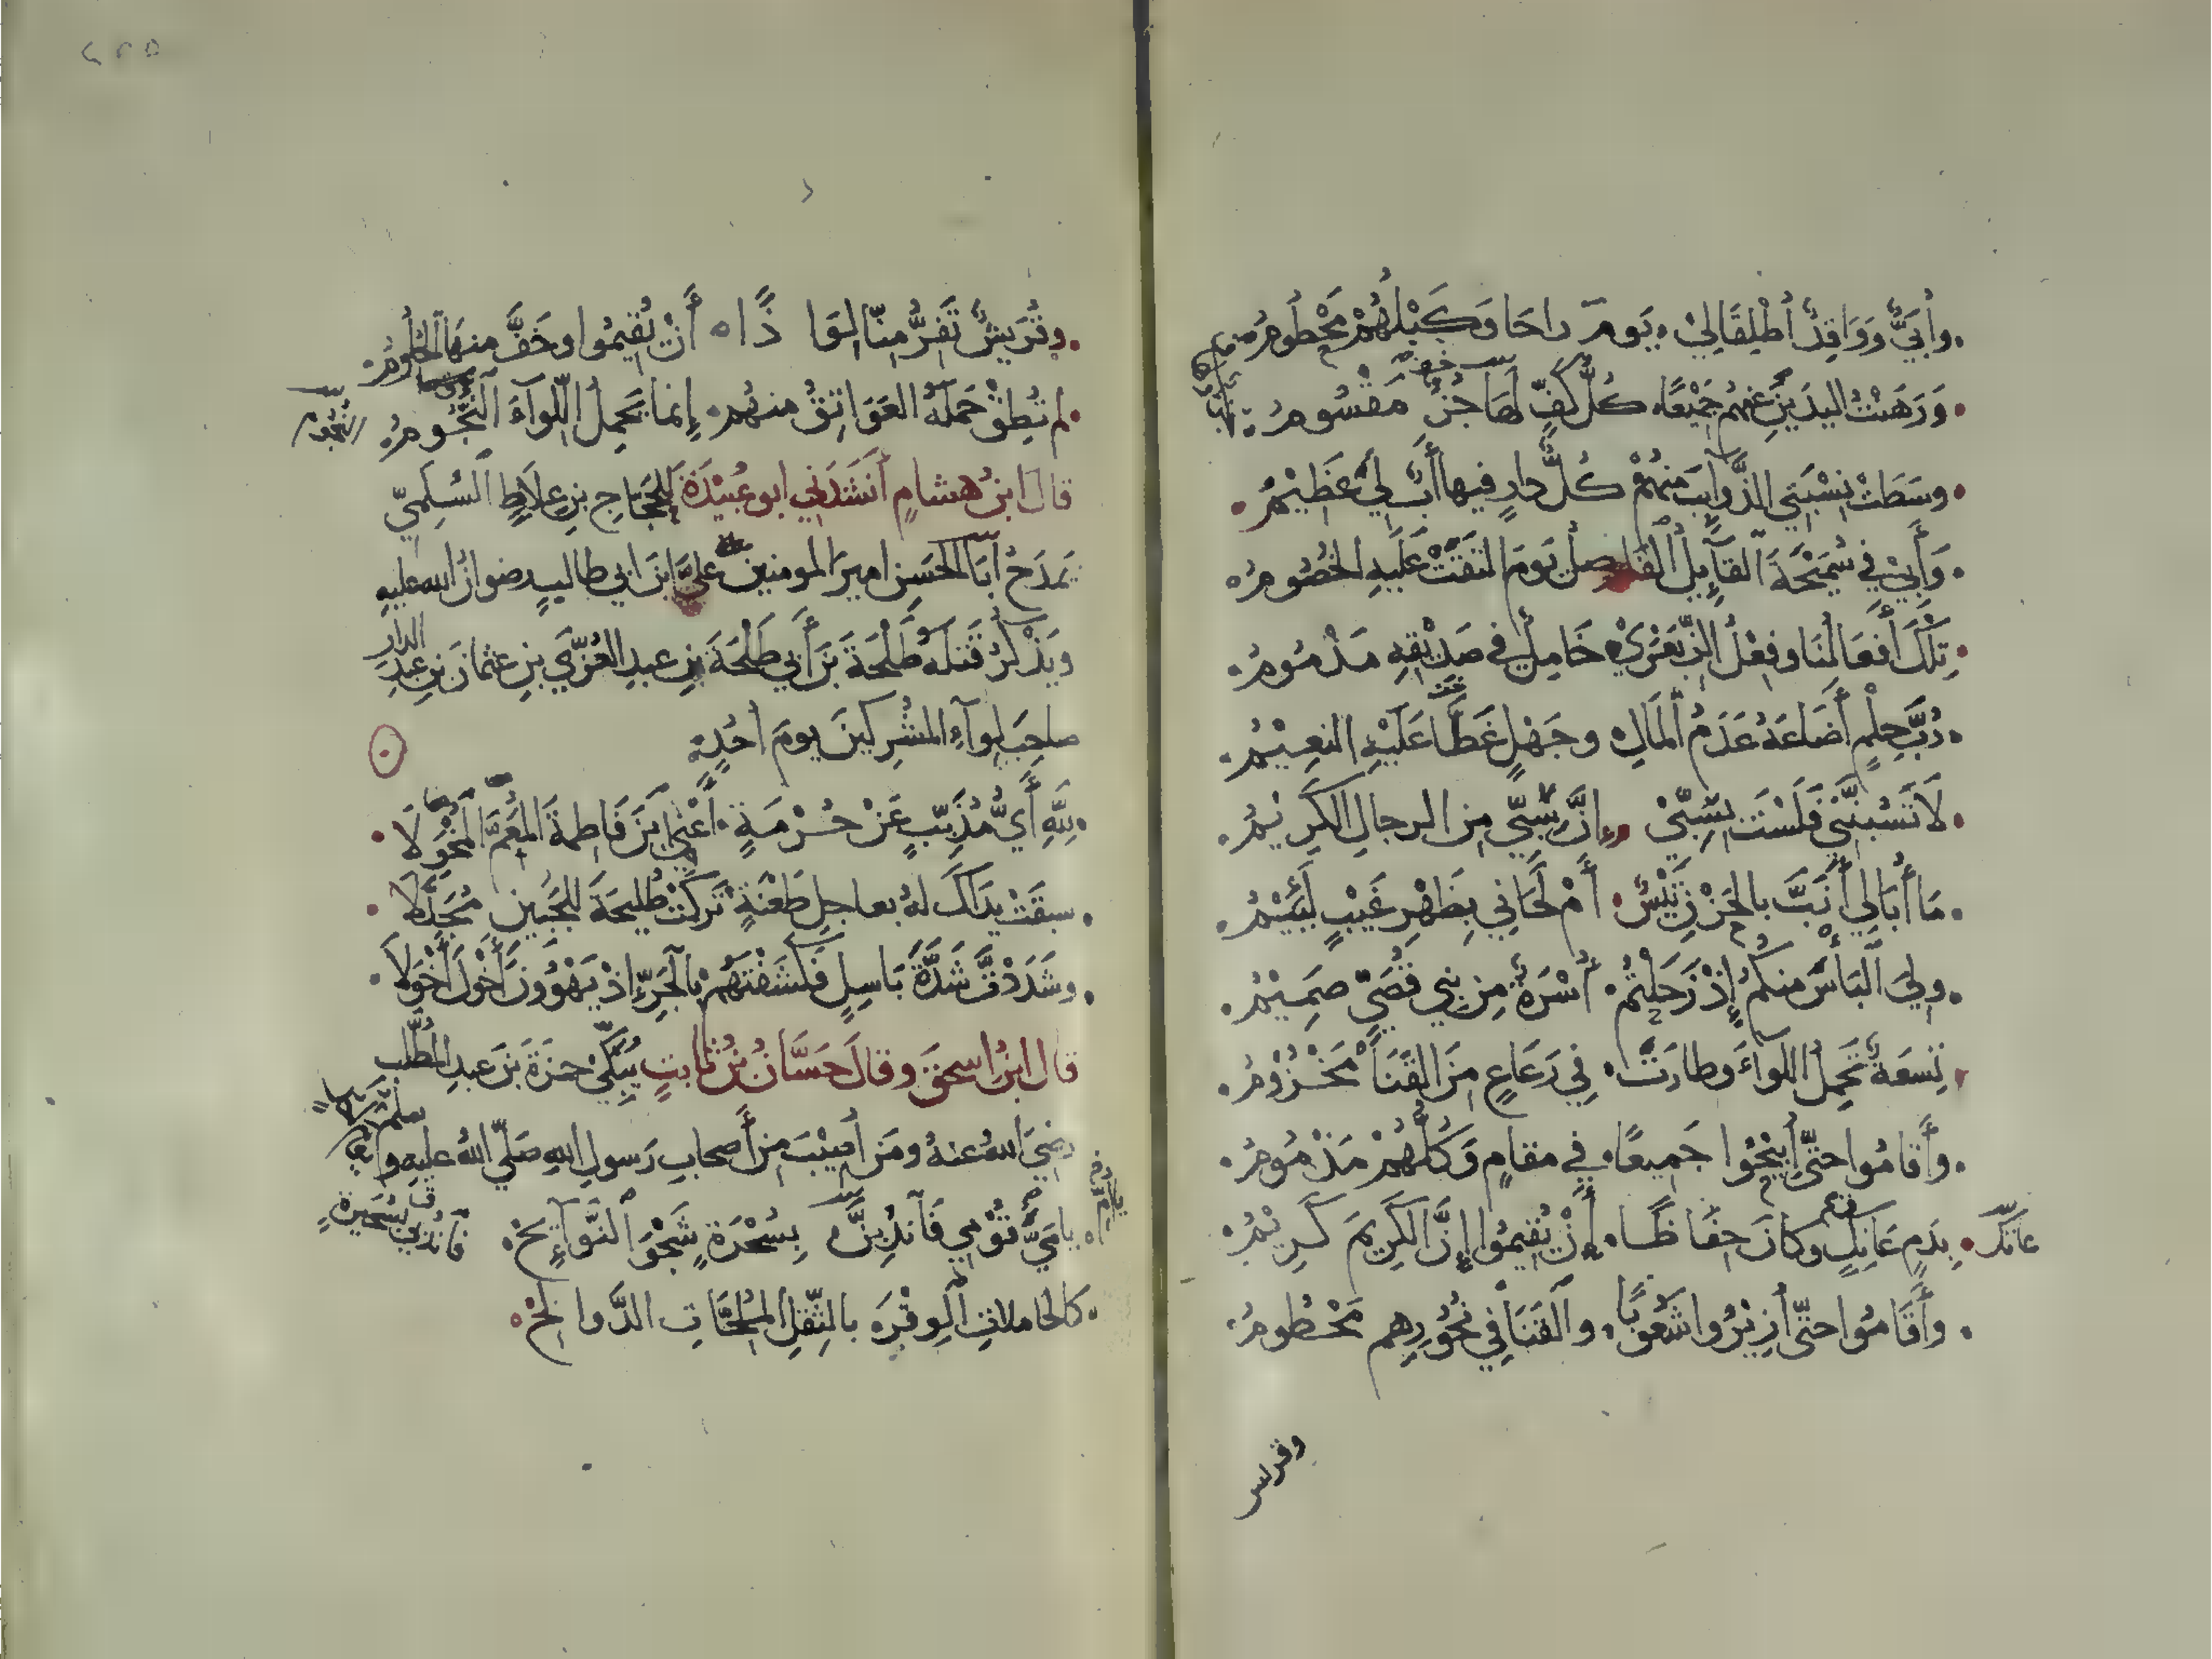 وأُبَيٌّ وَوَاقِدٌ أُطْلِقَا لِي يَوْمَ راحَا وَكَبْلُهُمْ مَحْطُومُ
وَرَهَنْتُ اليدَيْنِ عَنهُمْ جَمِيْعًا كُلُّ كَفٍّ لَهَا جُزْءٌ مَقْسُومُ
وسَطَتْ نِسْبَتِي الذَّوَايِبَ مِنهُمْ كُلُّ دارٍ فيها أَبٌ لِي عَظِيْمُ
وَأَبِي فِي سُمَيْحَةَ القَايِلُ الفَاصِلُ يَوْمَ التَقَتْ عَلَيهِ الخُصُومُ
تِلْكَ أَفْعَالُنَا وفِعْلُ الزِّبَعْرَى خَامِلٌ في صَدِيْقِهِ مَذْمُومُ
رُبَّ حِلْمٍ أَضَاعَهُ عَدَمُ المَالِ وجَهْلٍ غَطَّا عَلَيْهِ النعِيْمُ
لَا تَسُبَّنَّنِي فَلَسْتَ بِسِبِّي إنَّ سِبِّي مِن الرجالِ الكَرِيْمُ
مَا أُبَالِي أَنَبَّ بالحَزْنِ تَيْسٌ أَمْ لَحَانِي بِظَهْرِ غَيْبٍ لَئِيْمُ
وَلِيَ البَأْسَ مِنكُمُ إِذْ رَحَلْتُمْ أُسْرَةٌ مِن بَنِي قُصَيٍّ صَمِيْمُ
تِسعَةٌ تَحمِلُ اللواءَ وطارَتْ فِي رَعَاعٍ مِنَ القَنَا مَخْزُوْمُ
وأَقَامُوا حتّى أُبِيْحُوا جَمِيعًا فِي مقامٍ وَكُلُّهُمْ مَذْمُومُ
بِدَمٍ عَانِكٍ وكانَ حِفَاظًا أَنْ يُقِيمُوا إِنَّ الكَرِيمَ كَرِيْمُ
عانك
وأَقَامُوا حتّى أُزِيْرُوا شَعُوبًا والقَنَا فِي نُحُوْرِهِم مَحْطُومُ
وقريش
وقُرَيْشٌ تَفِرُّ مِنّا لِوَاذًا أَنْ يُقِيمُوا وخَفَّ منهَا الحُلُومُ
لم تُطِقْ حَمْلَهُ العَوَاتِقُ منهُم إِنما يَحمِلُ اللِّوَآءَ النُّجُومُ
النجوم
قال ابنُ هشامٍ أَنشَدَنِي ابو عُبَيْدَةَ للحَجّاجِ بنِ عِلَاطٍ السُّلَمِيّ
يَمدَحُ أَبَا الحَسَنِ اميرَ المومنين عليَّ ابنَ ابي طالبٍ رضوانُ الله عليه
وَيَذْكُرُ قَتلَهُ طَلْحَةَ بنَ أَبي طَلْحَةَ بنِ عبدِ العُزَّى بنِ عثمانَ بنِ عبدِ
الدار
صاحِبَ لِوآءِ المُشْرِكينَ يومَ أُحُدٍ
لِلهِ أَيُّ مُذَبِّبٍ عَنْ حُرْمَةٍ أَعْنِي ابْنَ فَاطِمةَ المُعَمَّ المُخْوَلَا
سبَقَتْ يَدَاكَ لهُ بعاجِلِ طَعْنَةٍ تَرَكَتْ طُلَيحَةَ للجَبينِ مُجَدَّلَا
وشَدَدْتَ شَدَّةَ بَاسِلٍ فَكَشَفْتَهُمْ بالجَرِّ إذْ يَهْوُونَ أَخْوَلَ أَخْوَلَا
قال ابنُ اسحقَ وقالَ حَسَّانُ بْنُ ثابتٍ يُبَكِّي حمزَةَ بنَ عبدِ المُطَّلِبِ
رضيَ اللهُ عنهُ ومَن أُصِيْبَ مِن أَصحابِ رَسولِ اللهِ صَلّى اللهُ عليهِ و
سلم
يا مَيُّ قُوْمِي فَاندُبِنَّ بِسُحْرَةٍ شَجْوَ النَّوَآئِحْ
فاندبي بسحيرة
كالحاملاتِ الوِقْرَ بالثِّقْلِ المُلِحَّاتِ الدَّوالِحْ